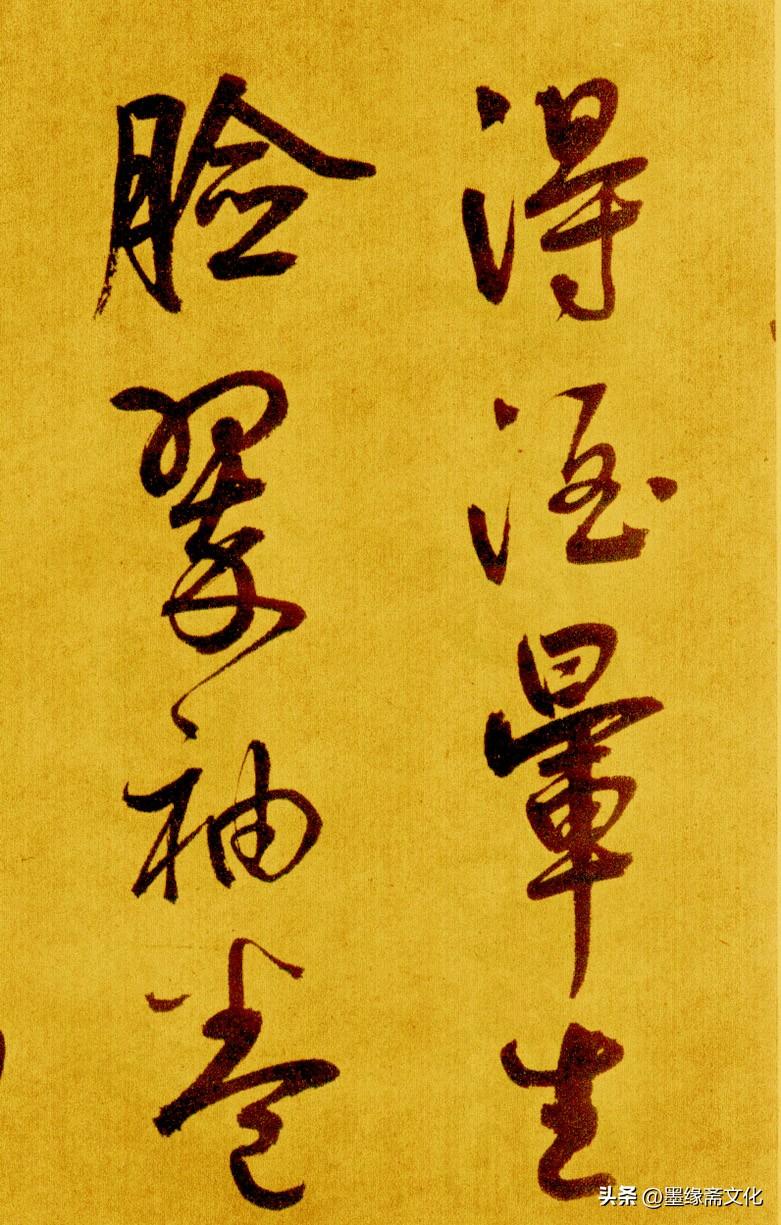 得酒暈生
臉翠袖卷
头条 @墨缘斋文化